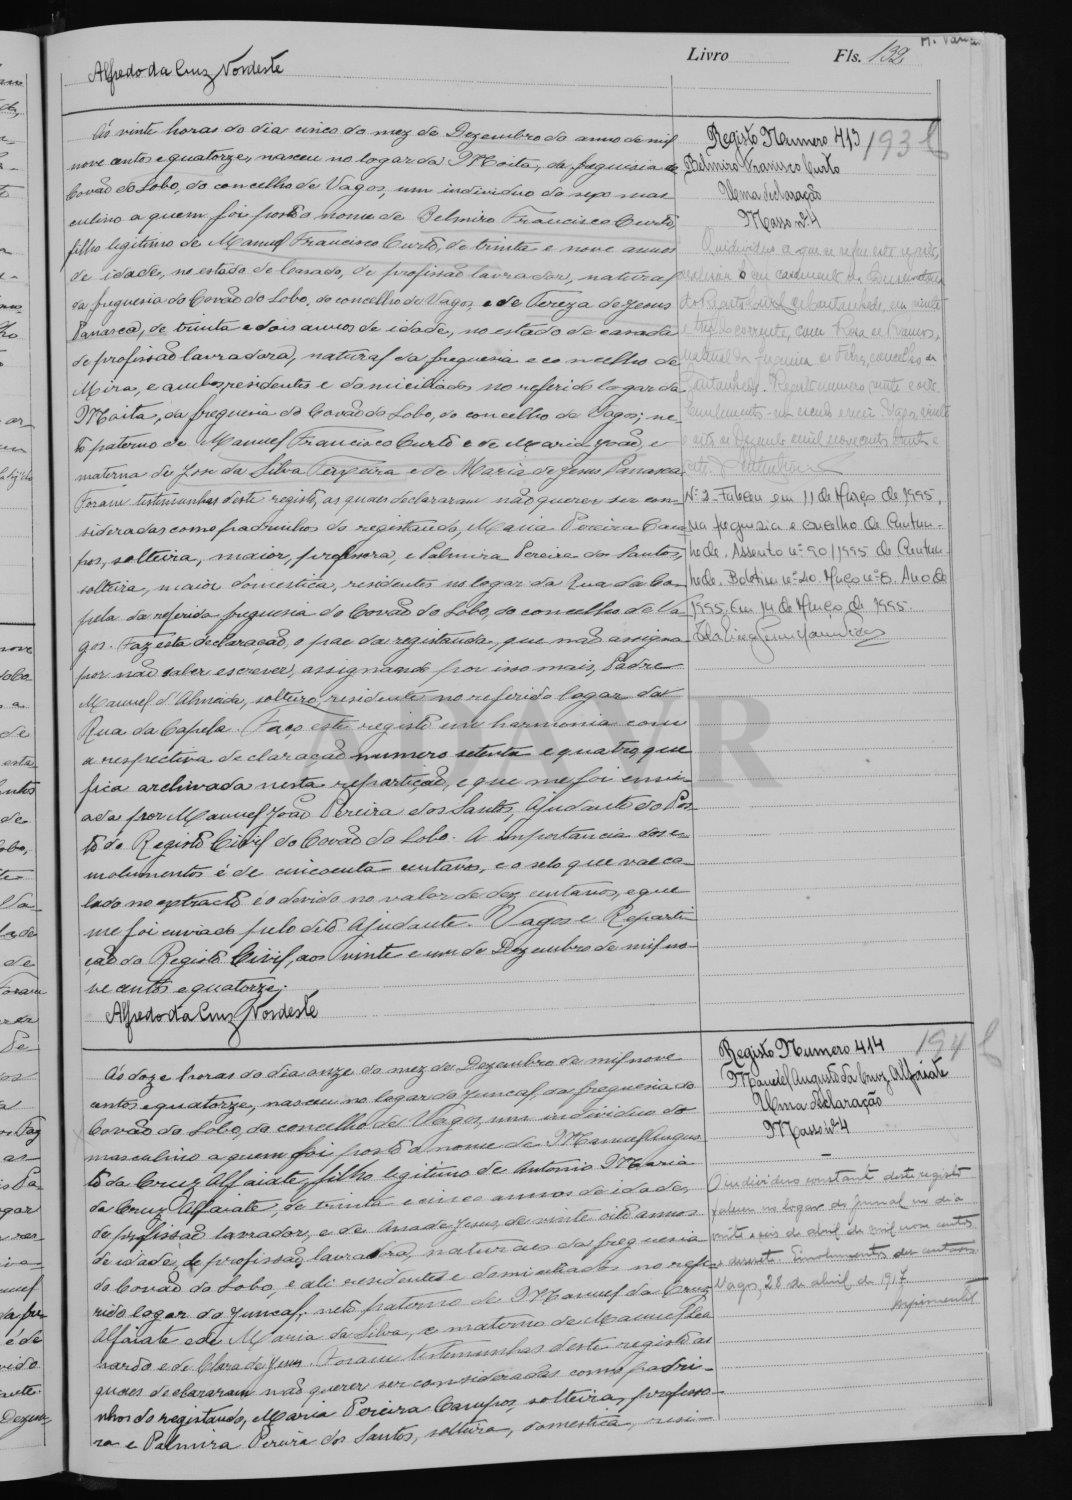 Alfredo da Cruz Nordeste
Livro Fls. 132
Ás vinte horas do dia cinco do mez de Dezembro do anno de mil
nove centos e quatorze, nasceu no logar da Moita, da freguesia de
Covão do Lobo, do concelho de Vagos, um individuo do sexo mas
culino a quem foi posto o nome de Belmiro Francisco Curto,
filho legitimo de Manuel Francisco Curto, de trinta e nove annos
de idade, no estado de casado, de profissão lavrador, natural
da freguesia do Covão do Lobo, do concelho de Vagos, e de Tereza de Jesus
Panasca, de trinta e dois annos de idade, no estado de casada
de profissão lavradora, natural da freguesia e concelho de
Mira, e ambos residentes e domiciliados no referido logar da
Moita, da freguesia do Covão do Lobo, do concelho de Vagos; ne-
to paterno de Manuel Francisco Curto e de Maria João, e
materna de Jose da Silva Terxeira e de Maria de Jesus Panasca.
Foram testimunhas deste registo, as quaes declararam não querer ser con-
sideradas como padrinhos do registando, Maria Pereira Cam
pos, solteira, maior, professora, e Palmira Pereira dos Santos,
solteira, maior domestica, residentes no logar da Rua da Ca-
pela da referida freguesia do Covão do Lobo, do concelho de Va
gos. Faz esta declaração, o pae da registando, que não assigna
por não saber escrever, assignando por isso mais, Padre
Manuel d'Almeida, solteiro, residente no referido logar da
Rua da Capela. Faço este registo em harmonia com
a respectiva declaração numero setenta e quatro, que
fica archivada nesta repartição, e que me foi envi-
ada por Manuel João Pereira dos Santos, Ajudante do Pos-
to do Registo Civil do Covão do Lobo. A importancia dos e-
molumentos é de cincoenta centavos, e o selo que vae co-
lado no extracto é o devido no valor de dez centavos, e que
me foi enviado pelo dito Ajudante. Vagos e Reparti
ção do Registo Civil, aos vinte e um de Dezembro de mil no-
ve centos e quatorze.
Alfredo da Cruz Nordeste
Registo Numero 413 193
Belmiro Francisco Curto
Uma declaração
Masso nº 4
O individuo a que se refere este registo,
do Registo Civil de Cantanhede, em vinte
e tres do corrente, com Rosa de Ramos,
natural da freguesia de Febres, concelho de
Cantanhede. Registo numero vinte e oito
Vagos, vinte
e oito de Dezembro de mil novecentos trinta e
Nº 2 - Faleceu em 11 de Março de 1995,
na freguesia e concelho de Cantan-
hede. Assento nº 90/1995 de Cantan-
hede. Boletim nº 20. Maço nº 8. Ano de
1995. Em 14 de Março de 1995.
ADAVR
Ás doze horas do dia onze do mez de Dezembro de mil nove
centos e quatorze, nasceu no logar do Juncal, da freguesia do
Covão do Lobo, do concelho de Vagos, um individuo do
masculino a quem foi posto o nome de Manuel Augus
to da Cruz Alfaiate, filho legitimo de Antonio Maria
da Cruz Alfaiate, de trinta e cinco annos de idade,
de profissão lavrador, e de Ana de Jesus, de vinte oito annos
de idade, de profissão lavradora, naturaes da freguesia
do Covão do Lobo, e ali residentes e domiciliados no refe-
rido logar do Juncal; neto paterno de Manuel da Cruz
Alfaiate e de Maria da Silva, e materno de Manuel Leo
nardo e de Clara de Jesus. Foram testemunhas deste registo as
quaes declararam não querer ser consideradas como padri-
nhos do registando, Maria Pereira Campos, solteira, professo-
ra e Palmira Pereira dos Santos, solteira, domestica, resi-
Registo Numero 414 194
Manuel Augusto da Cruz Alfaiate
Uma declaração
Masso nº 4
O individuo constante deste registo
faleceu no logar do Juncal no dia
vinte e seis de abril de mil nove centos
e dezesete. Emolumentos dez centavos
Vagos, 28 de abril de 1917.